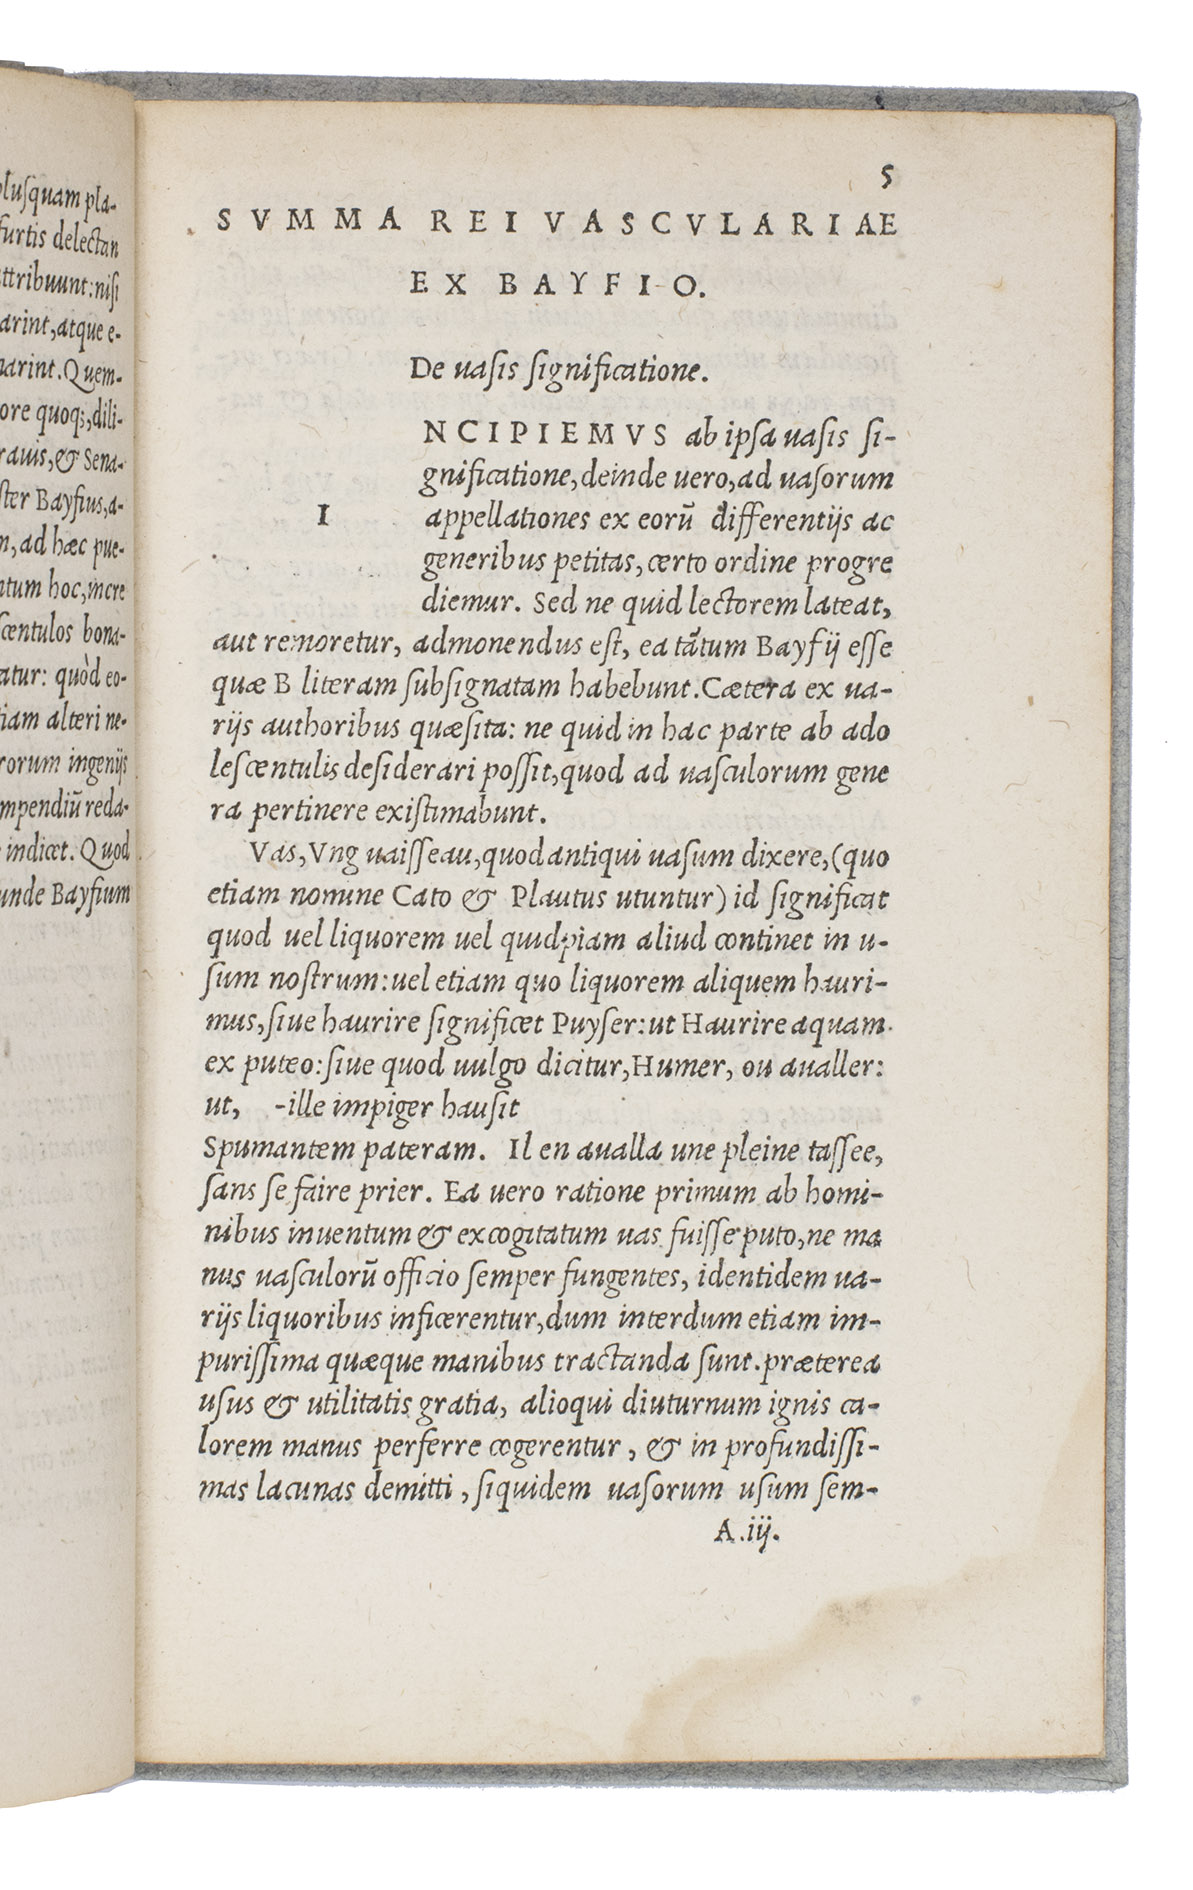 plusquam pla-
furtis delectan
attribuunt: nisi
arint, atque e-
narint. Quem-
ore quoq;, dili-
rauis, & Sena-
ster Bayfius, a-
m, ad hæc pue-
ntum hoc, incre
scentulos bona-
atur: quòd eo-
tiam alteri ne-
rorum ingenijs
mpendiū reda-
indicet. Quod
unde Bayfium
5
SVMMA REI VASCVLARIAE
EX BAYFIO.
De uasis significatione.
INCIPIEMVS ab ipsa uasis si-
gnificatione, deinde uero, ad uasorum
appellationes ex eorū differentijs ac
generibus petitas, certo ordine progre
diemur. Sed ne quid lectorem lateat,
aut remoretur, admonendus est, ea tātum Bayfij esse
quæ B literam subsignatam habebunt. Cætera ex ua-
rijs authoribus quæsita: ne quid in hac parte ab ado
lescentulis desiderari possit, quod ad uasculorum gene
ra pertinere existimabunt.
Vas, Vng uaisseau, quod antiqui uasum dixere, (quo
etiam nomine Cato & Plautus utuntur) id significat
quod uel liquorem uel quidpiam aliud continet in u-
sum nostrum: uel etiam quo liquorem aliquem hauri-
mus, siue haurire significet Puyser: ut Haurire aquam
ex puteo: siue quod uulgo dicitur, Humer, ou aualler:
ut, -ille impiger hausit
Spumantem pateram. Il en aualla une pleine tassee,
sans se faire prier. Ea uero ratione primum ab homi-
nibus inuentum & excogitatum uas fuisse puto, ne ma
nus uasculorū officio semper fungentes, identidem ua-
rijs liquoribus inficerentur, dum interdum etiam im-
purissima quæque manibus tractanda sunt. præterea
usus & utilitatis gratia, alioqui diuturnum ignis ca-
lorem manus perferre cogerentur, & in profundissi-
mas lacunas demitti, siquidem uasorum usum sem-
A.iij.